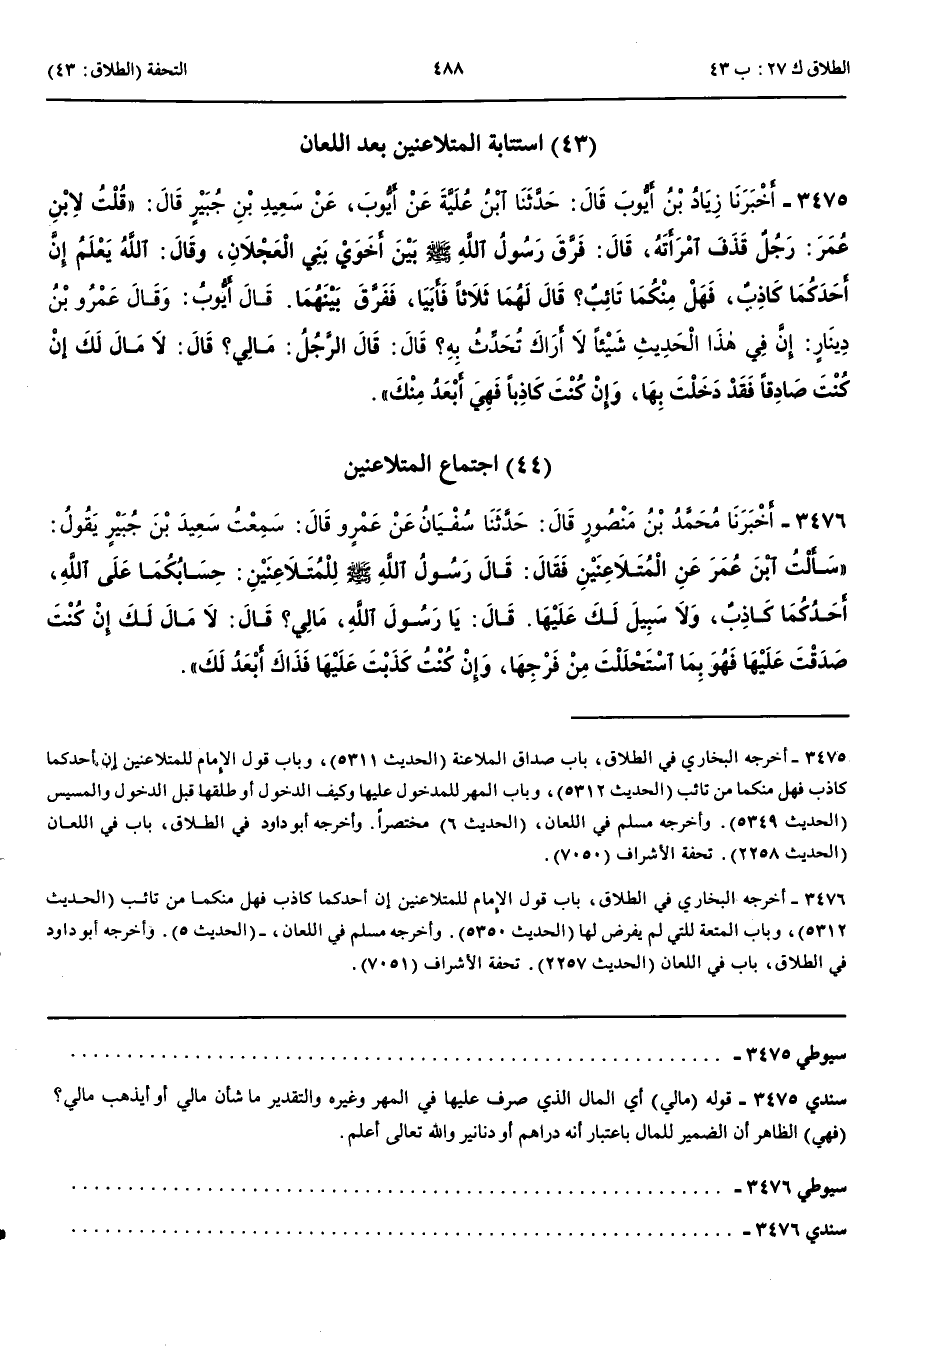 الطلاق ك ٢٧ : ب ٤٣ ٤٨٨ التحفة (الطلاق : ٤٣)
(٤٣) استتابة المتلاعنين بعد اللعان
٣٤٧٥ - أَخْبَرَنَا زِيَادُ بْنُ أَيُّوبَ قَالَ: حَدَّثَنَا ٱبْنُ عُلَيَّةَ عَنْ أَيُّوبَ، عَنْ سَعِيدِ بْنِ جُبَيْرٍ قَالَ: «قُلْتُ لِابْنِ
عُمَرَ: رَجُلٌ قَذَفَ ٱمْرَأَتَهُ، قَالَ: فَرَّقَ رَسُولُ ٱللَّهِ ﷺ بَيْنَ أَخَوَيْ بَنِي الْعَجْلَانِ، وقَالَ: ٱللَّهُ يَعْلَمُ إِنَّ
أَحَدَكُمَا كَاذِبٌ، فَهَلْ مِنْكُمَا تَائِبٌ؟ قَالَ لَهُمَا ثَلَاثاً فَأَبَيَا، فَفَرَّقَ بَيْنَهُمَا. قَالَ أَيُّوبُ: وَقَالَ عَمْرُو بْنُ
دِينَارٍ: إِنَّ فِي هٰذَا الْحَدِيثِ شَيْئاً لَا أَرَاكَ تُحَدِّثُ بِهِ؟ قَالَ: قَالَ الرَّجُلُ: مَالِي؟ قَالَ: لَا مَالَ لَكَ إِنْ
كُنْتَ صَادِقاً فَقَدْ دَخَلْتَ بِهَا، وَإِنْ كُنْتَ كَاذِباً فَهِيَ أَبْعَدُ مِنْكَ».
(٤٤) اجتماع المتلاعنين
٣٤٧٦ - أَخْبَرَنَا مُحَمَّدُ بْنُ مَنْصُورٍ قَالَ: حَدَّثَنَا سُفْيَانُ عَنْ عَمْرٍو قَالَ: سَمِعْتُ سَعِيدَ بْنَ جُبَيْرٍ يَقُولُ:
«سَأَلْتُ ٱبْنَ عُمَرَ عَنِ الْمُتَلَاعِنَيْنِ فَقَالَ: قَالَ رَسُولُ ٱللَّهِ ﷺ لِلْمُتَلَاعِنَيْنِ: حِسَابُكُمَا عَلَى ٱللَّهِ،
أَحَدُكُمَا كَاذِبٌ، وَلَا سَبِيلَ لَكَ عَلَيْهَا. قَالَ: يَا رَسُولَ ٱللَّهِ، مَالِي؟ قَالَ: لَا مَالَ لَكَ إِنْ كُنْتَ
صَدَقْتَ عَلَيْهَا فَهُوَ بِمَا ٱسْتَحْلَلْتَ مِنْ فَرْجِهَا، وَإِنْ كُنْتُ كَذَبْتَ عَلَيْهَا فَذَاكَ أَبْعَدُ لَكَ».
٣٤٧٥ - أخرجه البخاري في الطلاق، باب صداق الملاعنة (الحديث ٥٣١١)، وباب قول الإمام للمتلاعنين إن أحدكما
كاذب فهل منكما من تائب (الحديث ٥٣١٢)، وباب المهر للمدخول عليها وكيف الدخول أو طلقها قبل الدخول والمسيس
(الحديث ٥٣٤٩). وأخرجه مسلم في اللعان، (الحديث ٦) مختصراً. وأخرجه أبو داود في الطلاق، باب في اللعان
(الحديث ٢٢٥٨). تحفة الأشراف (٧٠٥٠).
٣٤٧٦ - أخرجه البخاري في الطلاق، باب قول الإمام للمتلاعنين إن أحدكما كاذب فهل منكما من تائب (الحديث
٥٣١٢)، وباب المتعة للتي لم يفرض لها (الحديث ٥٣٥٠). وأخرجه مسلم في اللعان، - (الحديث ٥). وأخرجه أبو داود
في الطلاق، باب في اللعان (الحديث ٢٢٥٧). تحفة الأشراف (٧٠٥١).
سيوطي ٣٤٧٥ - . . . . . . . . . . . . . . . . . . . . . . . . . . . . . .
سندي ٣٤٧٥ - قوله (مالي) أي المال الذي صرف عليها في المهر وغيره والتقدير ما شأن مالي أو أيذهب مالي؟
(فهي) الظاهر أن الضمير للمال باعتبار أنه دراهم أو دنانير والله تعالى أعلم.
سيوطي ٣٤٧٦ - . . . . . . . . . . . . . . . . . . . . . . . . . . . . . .
سندي ٣٤٧٦ - . . . . . . . . . . . . . . . . . . . . . . . . . . . . . .